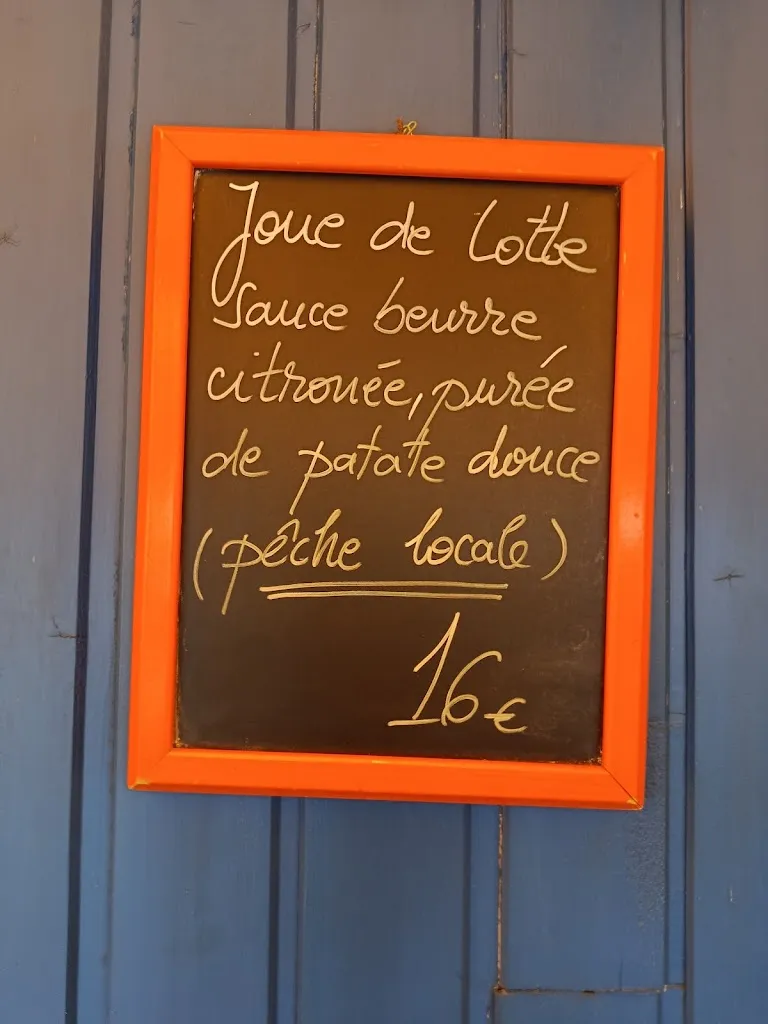 Joue de Lotte
Sauce beurre
citronée, purée
de patate douce
(pêche locale)
16€